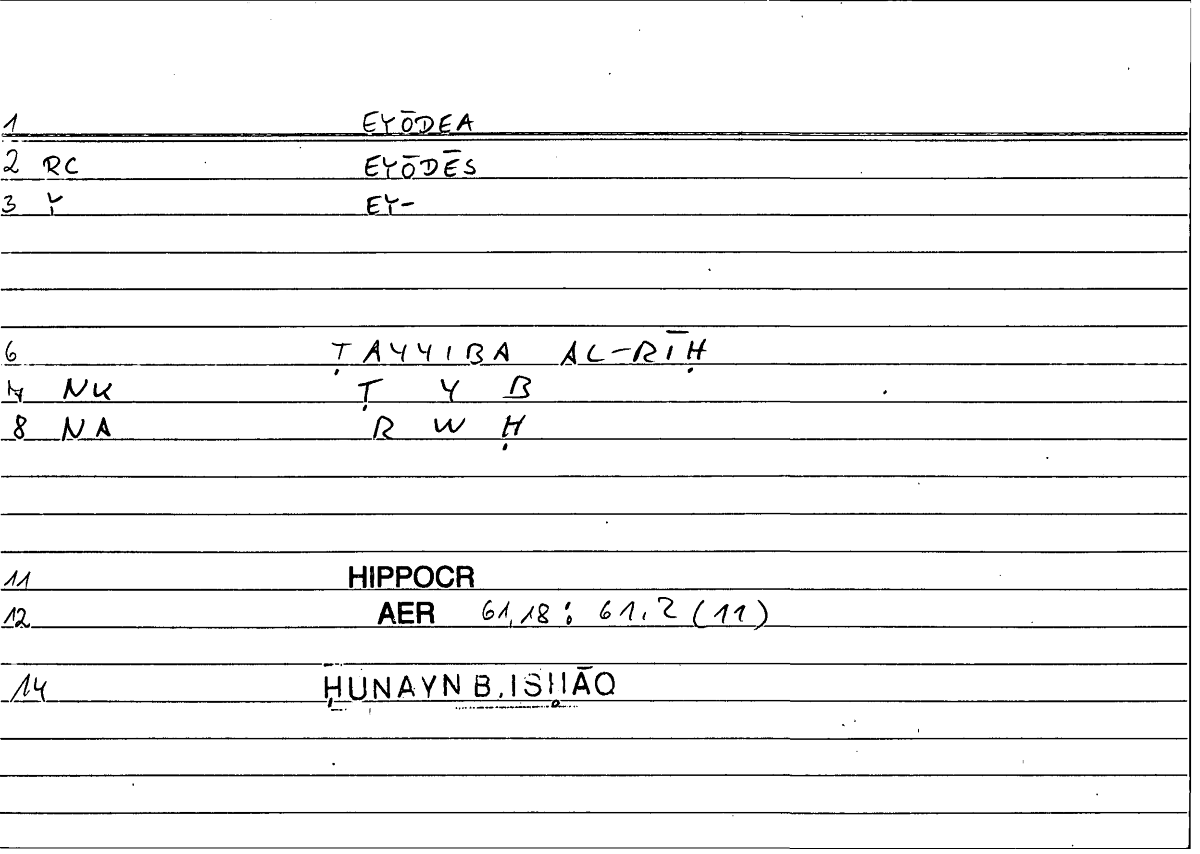 1 EYŌDEA
2 RC EYŌDĒS
3 Ỵ EY-
6 ṬAYYIBA AL-RĪḤ
7 NK Ṭ Y B
8 NA R W Ḥ
11 HIPPOCR
12 AER 61,18 : 61,2 (11)
14 ḤUNAYN B. ISḤĀQ